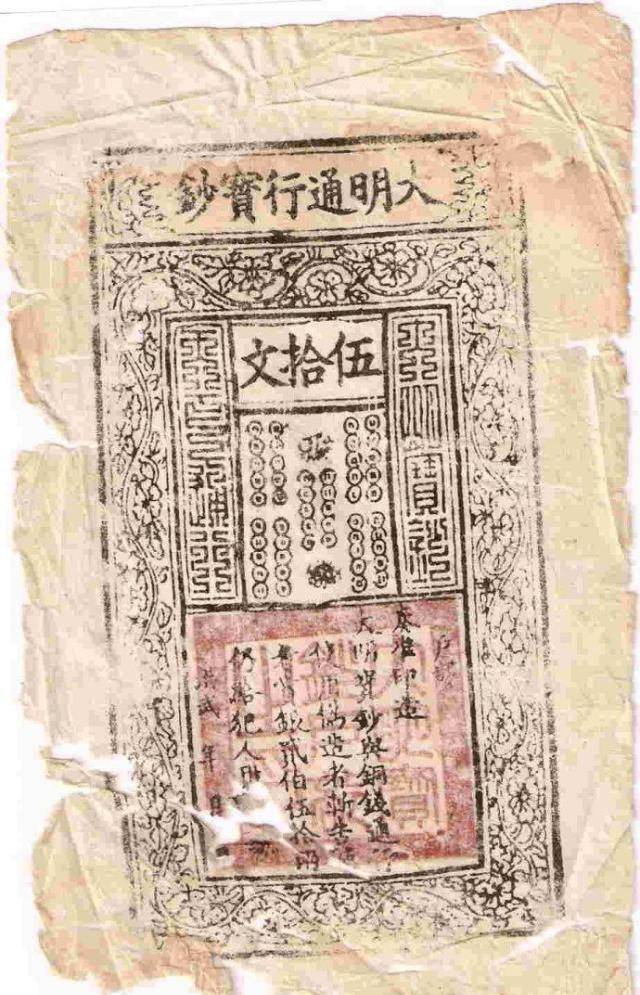 大明通行寶鈔
伍拾文
大明寶鈔
天下通行
戶部
奏准印造
大明寶鈔與銅錢通行
使用偽造者斬告
者賞銀貳伯伍拾兩
仍給犯人財
洪武 年 月